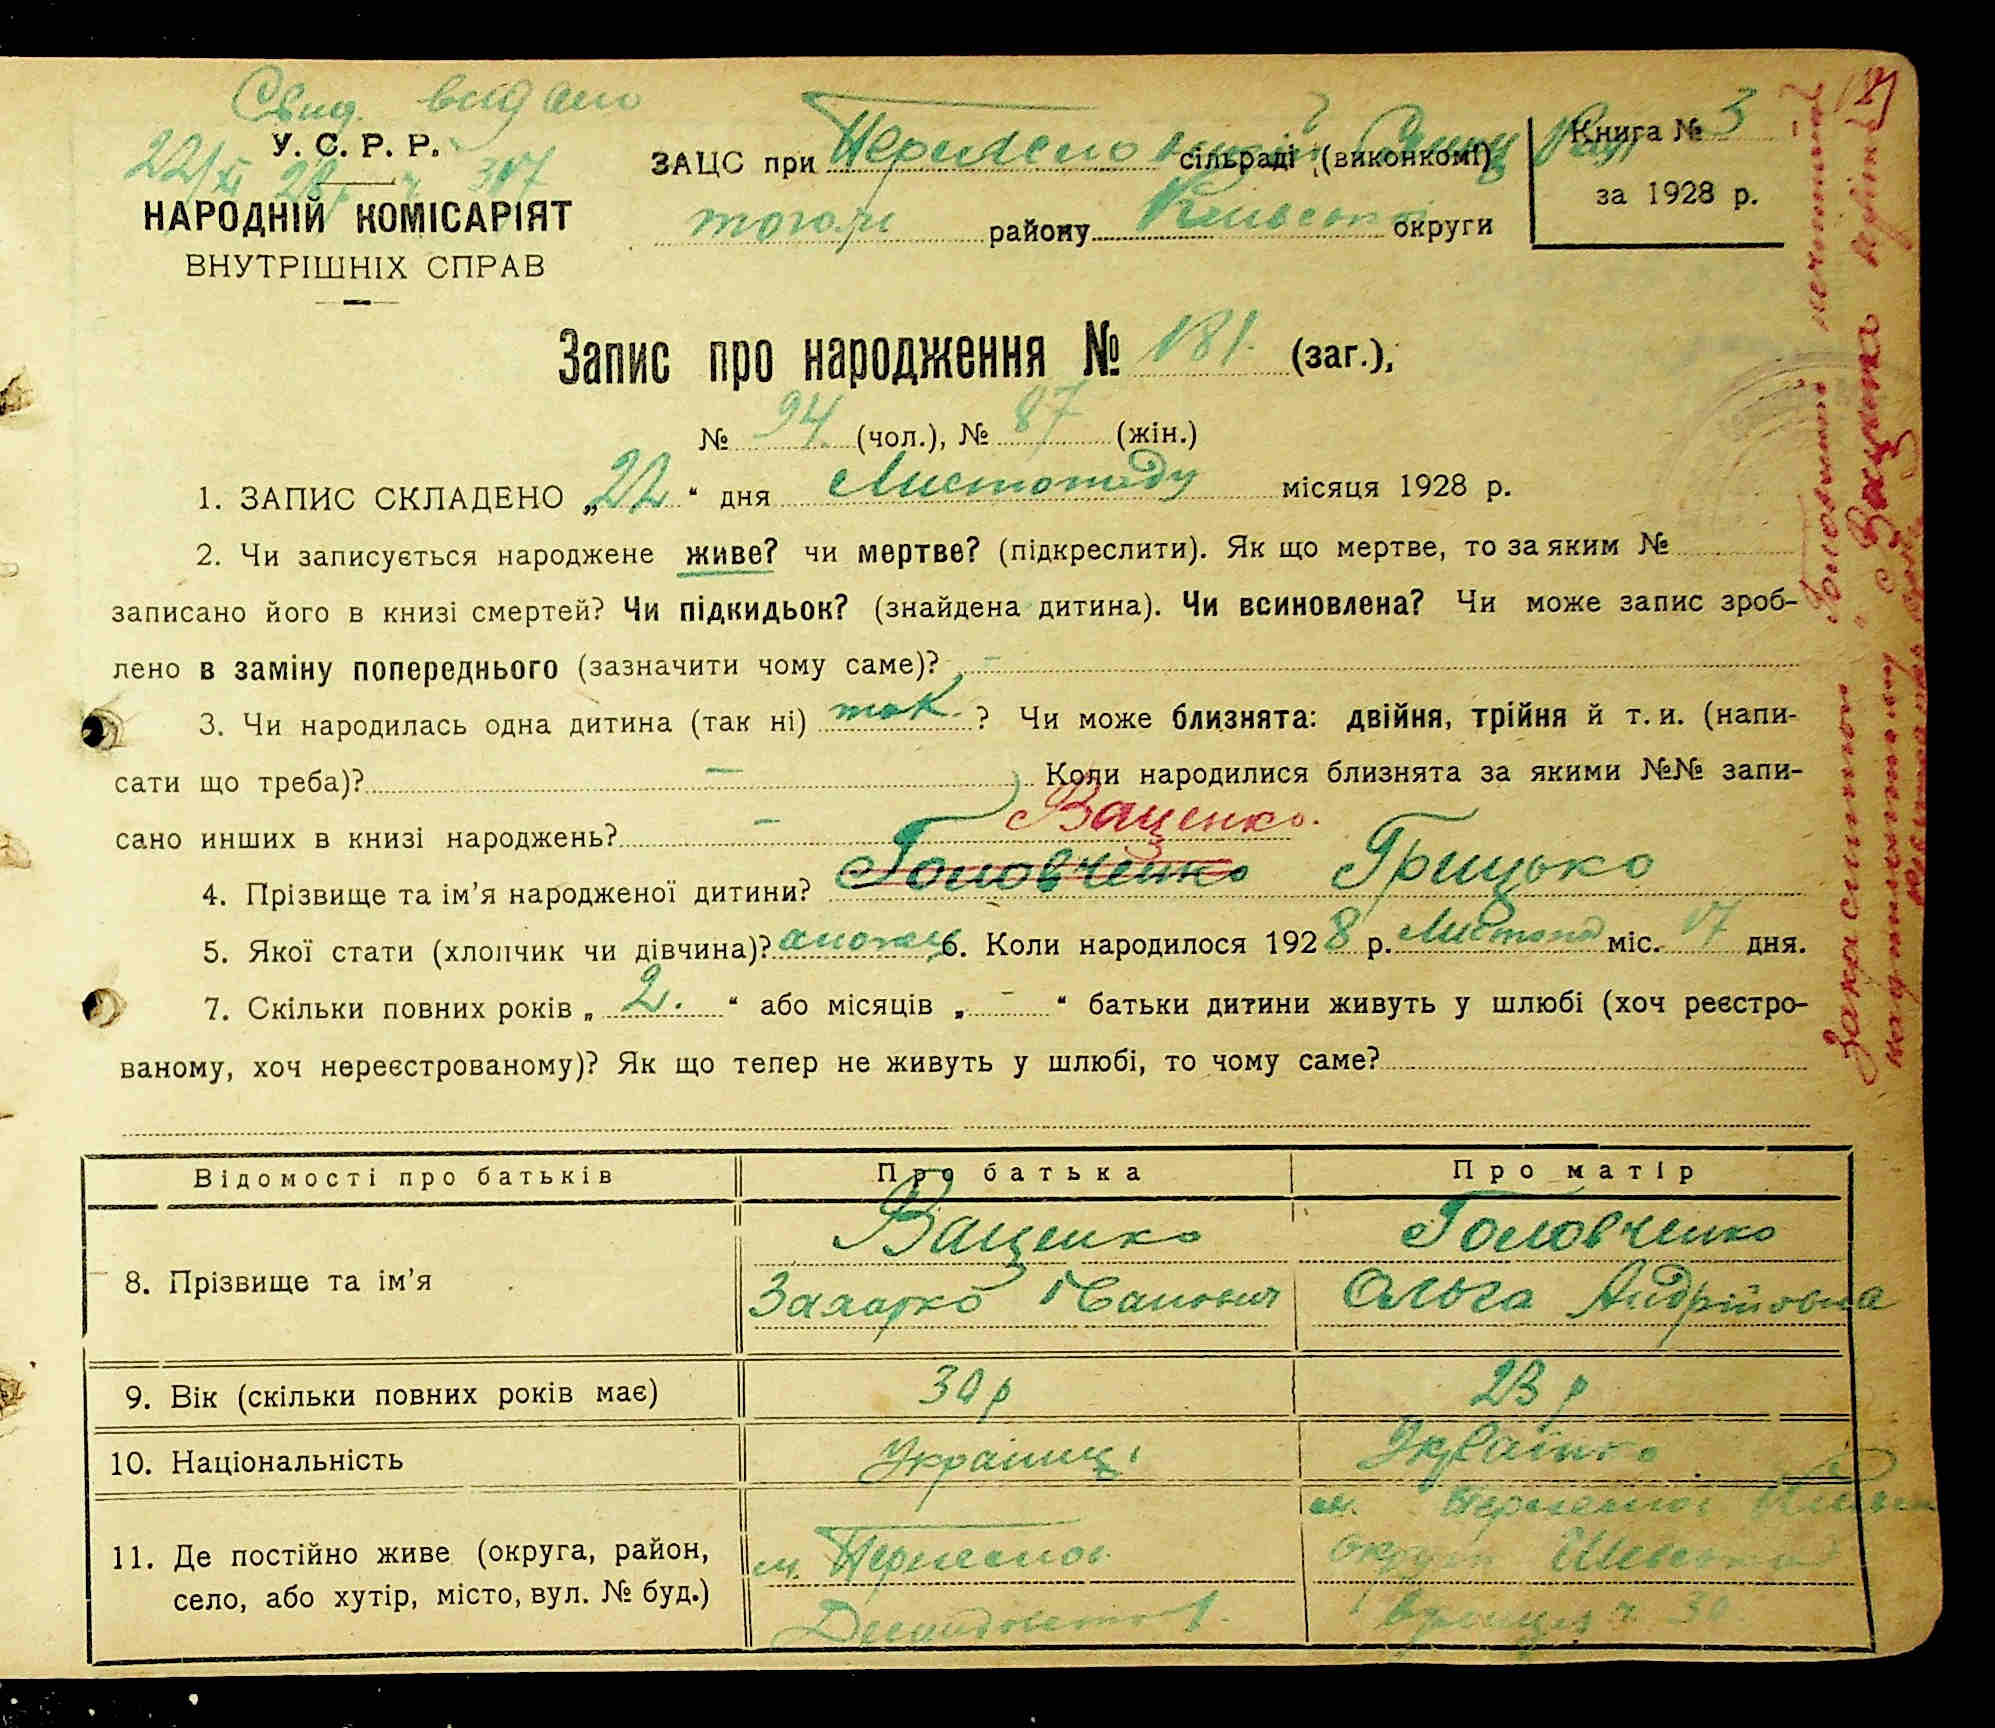 Свид. видано
22/XI 28 р. ч. 307
У. С. Р. Р.
НАРОДНІЙ КОМІСАРІЯТ
ВНУТРІШНІХ СПРАВ
ЗАЦС при сільраді (виконкомі)
району Київської округи
Книга № 3
за 1928 р.
Запис про народження № 181. (заг.),
№ 94. (чол.), № 87 (жін.)
1. ЗАПИС СКЛАДЕНО „22“ дня Листопаду місяця 1928 р.
2. Чи записується народжене живе? чи мертве? (підкреслити). Як що мертве, то за яким №
записано його в книзі смертей? Чи підкидьок? (знайдена дитина). Чи всиновлена? Чи може запис зроб-
лено в заміну попереднього (зазначити чому саме)? –
3. Чи народилась одна дитина (так ні) так. ? Чи може близнята: двійня, трійня й т. и. (напи-
сати що треба)? – Коли народилися близнята за якими №№ запи-
сано инших в книзі народжень? –
Ващенко.
4. Прізвище та ім’я народженої дитини? Головченко Грицько
5. Якої стати (хлопчик чи дівчина)? 6. Коли народилося 1928 р. Листопад міс. 17 дня.
7. Скільки повних років „ 2. “ або місяців „ – “ батьки дитини живуть у шлюбі (хоч реєстро-
ваному, хоч нереєстрованому)? Як що тепер не живуть у шлюбі, то чому саме?
Відомості про батьків Про батька Про матір
8. Прізвище та ім’я
Ващенко
Захарко Іванович
Головченко
Ольга Андріївна
9. Вік (скільки повних років має) 30 р 23 р
10. Національність Українці Українка
11. Де постійно живе (округа, район,
село, або хутір, місто, вул. № буд.)
м.
м.
округи
вулиця ч. 30